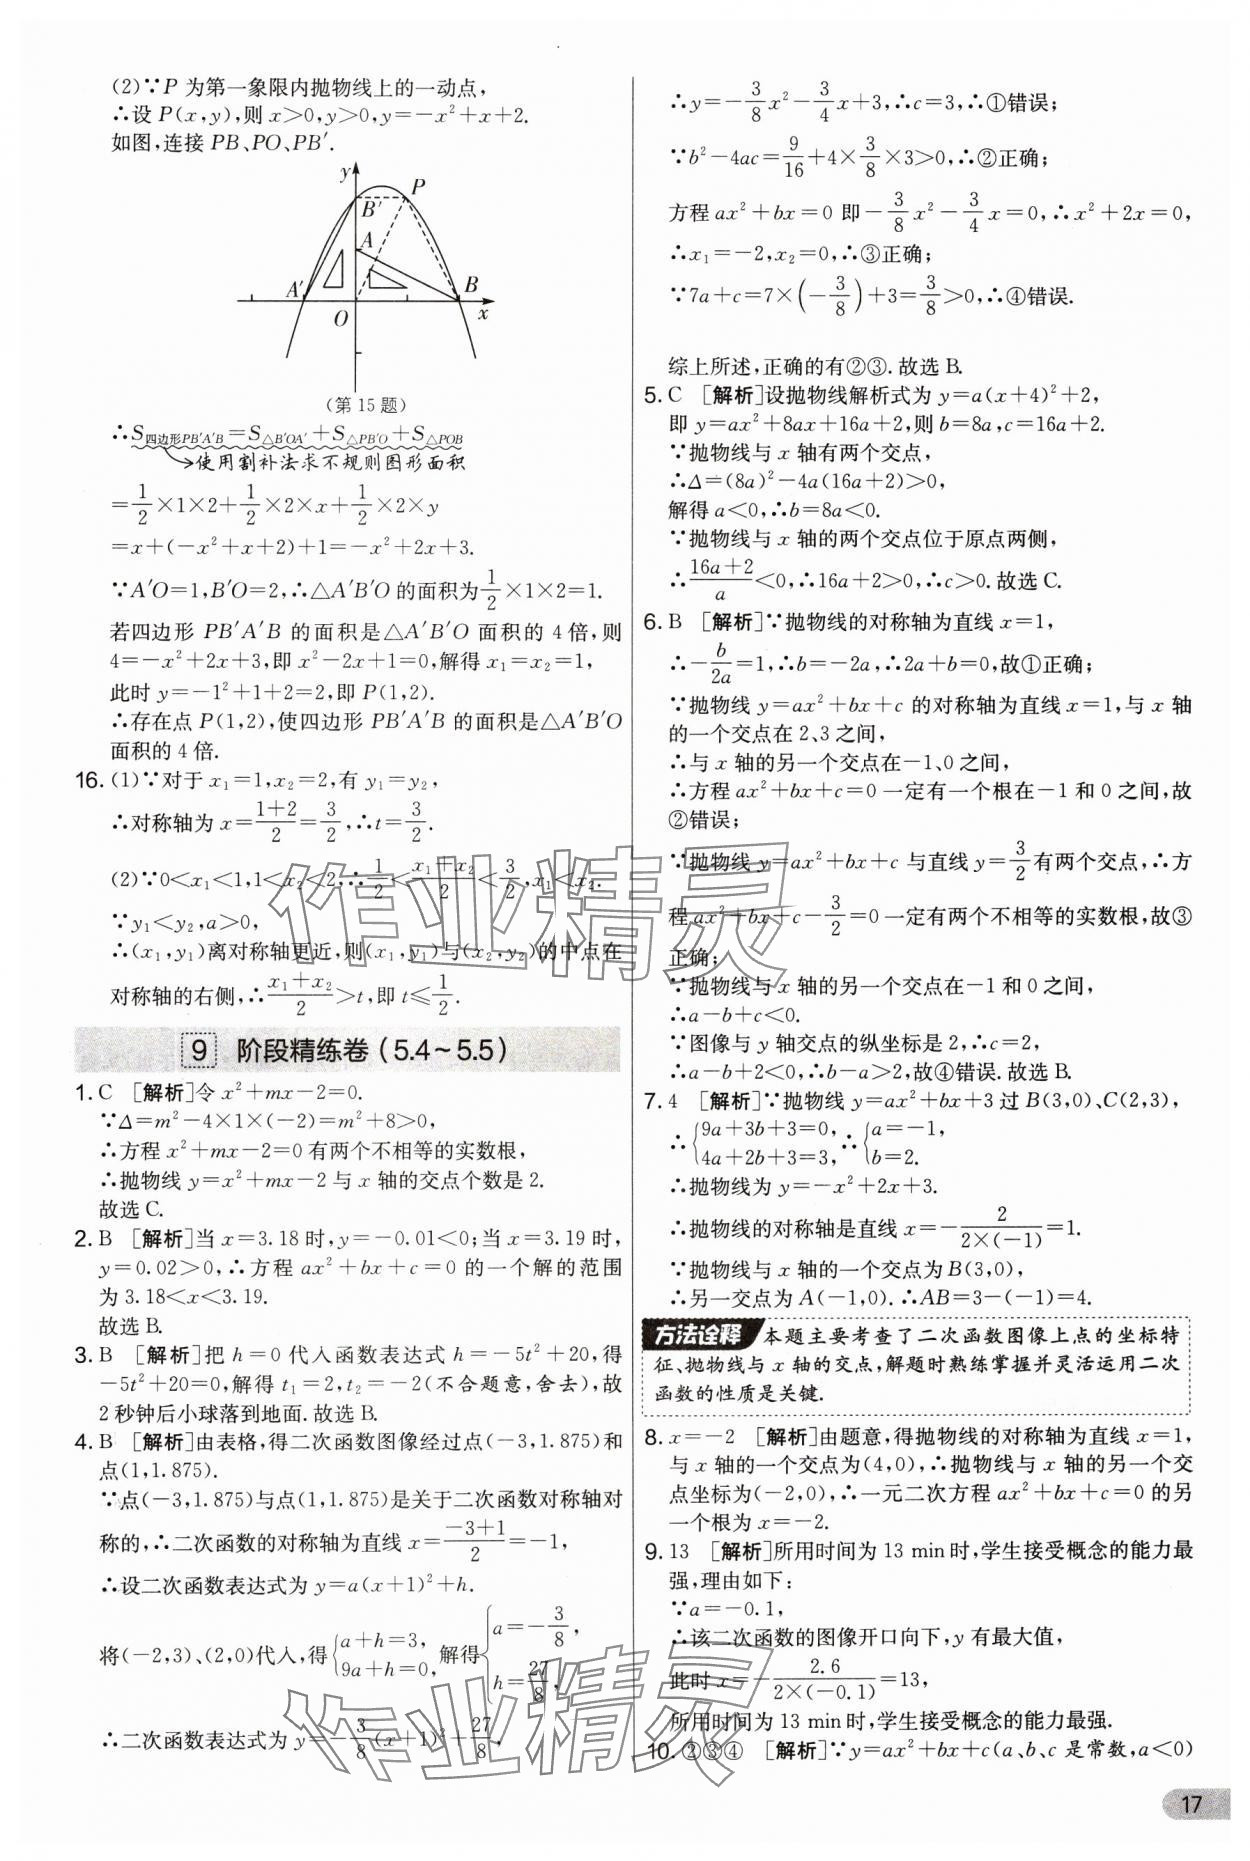 (2)∵P 为第一象限内抛物线上的一动点,
∴设 P(x,y),则 x>0,y>0,y=-x²+x+2.
如图,连接 PB、PO、PB′.
y
P
B′
A
A′
B
O
x
(第 15 题)
∴S四边形PB′A′B=S△B′OA′+S△PB′O+S△POB
→使用割补法求不规则图形面积
=1/2×1×2+1/2×2×x+1/2×2×y
=x+(-x²+x+2)+1=-x²+2x+3.
∵A′O=1,B′O=2,∴△A′B′O 的面积为1/2×1×2=1.
若四边形 PB′A′B 的面积是△A′B′O 面积的 4 倍,则
4=-x²+2x+3,即 x²-2x+1=0,解得 x₁=x₂=1,
此时 y=-1²+1+2=2,即 P(1,2).
∴存在点 P(1,2),使四边形 PB′A′B 的面积是△A′B′O
面积的 4 倍.
16. (1)∵对于 x₁=1,x₂=2,有 y₁=y₂,
∴对称轴为 x=(1+2)/2=3/2,∴t=3/2.
(2)∵0<x₁<1,1<x₂<2,∴1/2<(x₁+x₂)/2<3/2,x₁<x₂.
∵y₁<y₂,a>0,
∴(x₁,y₁)离对称轴更近,则(x₁,y₁)与(x₂,y₂)的中点在
对称轴的右侧,∴(x₁+x₂)/2>t,即 t≤1/2.
9 阶段精练卷(5.4~5.5)
1. C [解析]令 x²+mx-2=0.
∵Δ=m²-4×1×(-2)=m²+8>0,
∴方程 x²+mx-2=0 有两个不相等的实数根,
∴抛物线 y=x²+mx-2 与 x 轴的交点个数是 2.
故选 C.
2. B [解析]当 x=3.18 时,y=-0.01<0;当 x=3.19 时,
y=0.02>0,∴方程 ax²+bx+c=0 的一个解的范围
为 3.18<x<3.19.
故选 B.
3. B [解析]把 h=0 代入函数表达式 h=-5t²+20,得
-5t²+20=0,解得 t₁=2,t₂=-2(不合题意,舍去),故
2 秒钟后小球落到地面.故选 B.
4. B [解析]由表格,得二次函数图像经过点(-3,1.875)和
点(1,1.875).
∵点(-3,1.875)与点(1,1.875)是关于二次函数对称轴对
称的,∴二次函数的对称轴为直线 x=(-3+1)/2=-1,
∴设二次函数表达式为 y=a(x+1)²+h.
将(-2,3)、(2,0)代入,得{a+h=3, 9a+h=0,解得{a=-3/8, h=27/8,
∴二次函数表达式为 y=-3/8(x+1)²+27/8,
∴y=-3/8x²-3/4x+3,∴c=3,∴①错误;
∵b²-4ac=9/16+4×3/8×3>0,∴②正确;
方程 ax²+bx=0 即-3/8x²-3/4x=0,∴x²+2x=0,
∴x₁=-2,x₂=0,∴③正确;
∵7a+c=7×(-3/8)+3=3/8>0,∴④错误.
综上所述,正确的有②③.故选 B.
5. C [解析]设抛物线解析式为 y=a(x+4)²+2,
即 y=ax²+8ax+16a+2,则 b=8a,c=16a+2.
∵抛物线与 x 轴有两个交点,
∴Δ=(8a)²-4a(16a+2)>0,
解得 a<0,∴b=8a<0.
∵抛物线与 x 轴的两个交点位于原点两侧,
∴(16a+2)/a<0,∴16a+2>0,∴c>0.故选 C.
6. B [解析]∵抛物线的对称轴为直线 x=1,
∴-b/2a=1,∴b=-2a,∴2a+b=0,故①正确;
∵抛物线 y=ax²+bx+c 的对称轴为直线 x=1,与 x 轴
的一个交点在 2、3 之间,
∴与 x 轴的另一个交点在-1、0 之间,
∴方程 ax²+bx+c=0 一定有一个根在-1 和 0 之间,故
②错误;
∵抛物线 y=ax²+bx+c 与直线 y=3/2有两个交点,∴方
程 ax²+bx+c-3/2=0 一定有两个不相等的实数根,故③
正确;
∵抛物线与 x 轴的另一个交点在-1 和 0 之间,
∴a-b+c<0.
∵图像与 y 轴交点的纵坐标是 2,∴c=2,
∴a-b+2<0,∴b-a>2,故④错误.故选 B.
7. 4 [解析]∵抛物线 y=ax²+bx+3 过 B(3,0)、C(2,3),
∴{9a+3b+3=0, 4a+2b+3=3,∴{a=-1, b=2.
∴抛物线为 y=-x²+2x+3.
∴抛物线的对称轴是直线 x=-2/(2×(-1))=1.
∵抛物线与 x 轴的一个交点为 B(3,0),
∴另一交点为 A(-1,0).∴AB=3-(-1)=4.
方法诠释 本题主要考查了二次函数图像上点的坐标特
征、抛物线与 x 轴的交点,解题时熟练掌握并灵活运用二次
函数的性质是关键.
8. x=-2 [解析]由题意,得抛物线的对称轴为直线 x=1,
与 x 轴的一个交点为(4,0),∴抛物线与 x 轴的另一个交
点坐标为(-2,0),∴一元二次方程 ax²+bx+c=0 的另
一个根为 x=-2.
9. 13 [解析]所用时间为 13 min 时,学生接受概念的能力最
强,理由如下:
∵a=-0.1,
∴该二次函数的图像开口向下,y 有最大值,
此时 x=-2.6/(2×(-0.1))=13,
所用时间为 13 min 时,学生接受概念的能力最强.
10. ②③④ [解析]∵y=ax²+bx+c(a、b、c 是常数,a<0)
17
作业精灵
作业精灵